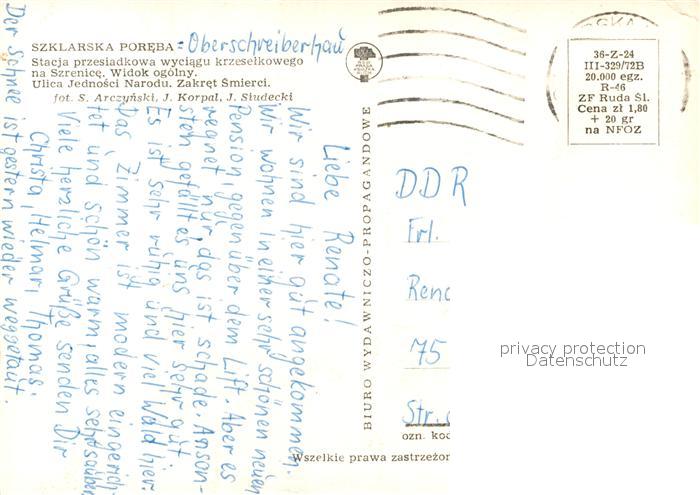 SZKLARSKA PORĘBA = Oberschreiberhau
Stacja przesiadkowa wyciągu krzesełkowego
na Szrenicę. Widok ogólny.
Ulica Jedności Narodu. Zakręt Śmierci.
fot. S. Arczyński, J. Korpal, J. Siudecki
Liebe Renate!
Wir sind hier gut angekommen.
Wir wohnen in einer sehr schönen neuen
Pension, gegenüber dem Lift. Aber es
regnet nur, das ist schade. Anson-
sten gefällt es uns hier sehr gut.
Es ist sehr ruhig und viel Wald hier.
Das Zimmer ist modern eingerich-
tet und schön warm, alles sehr sauber.
Viele herzliche Grüße senden Dir
Christa, Helmar, Thomas.
Der Schnee ist gestern wieder weggetaut.
BIURO WYDAWNICZO-PROPAGANDOWE
36-Z-24
III-329/72B
20.000 egz.
R-46
ZF Ruda Śl.
Cena zł 1,80
+ 20 gr
na NFOZ
DDR
Frl.
Rena
75
Str.
ozn. kod
Wszelkie prawa zastrzeżon
privacy protection
Datenschutz